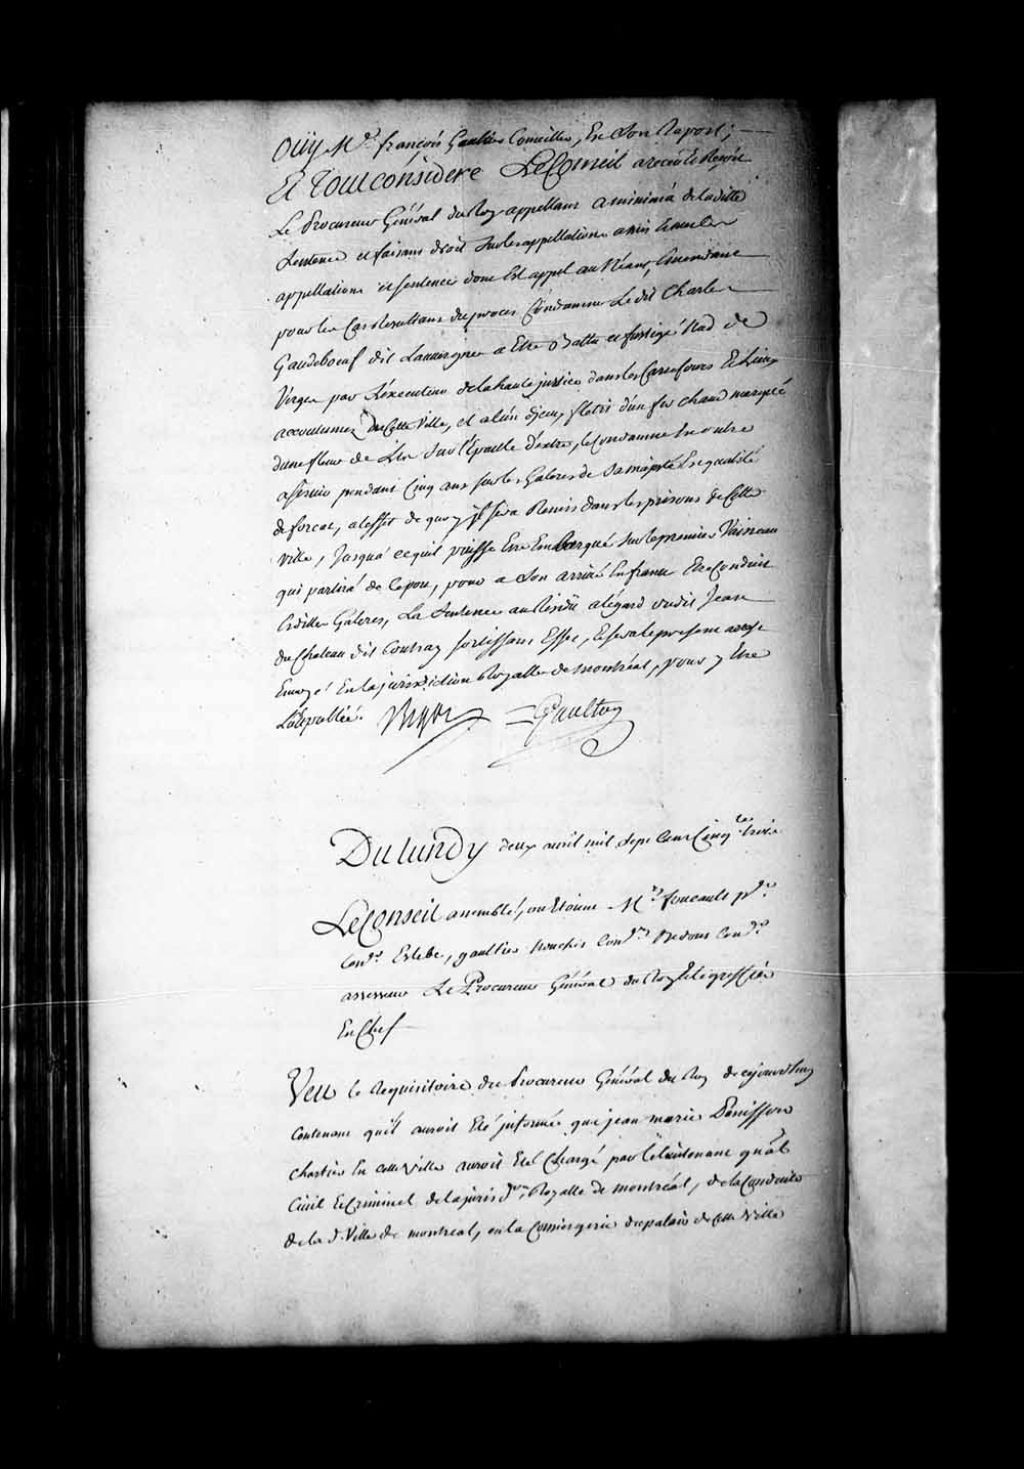 Oüy Mr. françois Gaultier Conseiller, En Son Raport;
Et Tout considéré Le Conseil a receu & Reçoit
Le Procureur Général du Roy appellant a minimâ de laditte
Sentence et faisant droit Sur les appellations a mis & met les
appellations et Sentence dont Est appel au Néant, Emendant
pour les Cas Resultans du procès Condamne Le dit Charles
Gaudeboeuf dit Lauvergne a Etre Battu et fustigé Nud de
Verges par L'éxécuteur de la haute justice dans les Carrefours Et Lieux
accoutumez De Cette Ville, et a l'un d'jeux, flétri d'un fer chaud marqué
d'une fleur de Lis Sur l'Epaulle dextre, le Condamne En outre
a Servir pendant Cinq ans Sur les Galeres de Sa majesté En qualité
de forcat, a leffet de quoy jl Sera Remis dans les prisons de Cette
ville, Jusqu'a ce quil puisse Etre Embarqué Sur le premier Vaisseau
qui partira de Ce port, pour a Son arrivée En france Etre Conduit
Esdittes Galeres, La Sentence au Résidu a l'égard dudit Jean
du Chateau dit Coutray Sortissant Effet, Et Sera le present arrest
Envoyé En la jurisdiction Royalle de Montréal, pour y Etre
Bigot Gaultier
Du lundy deux avril mil Sept Cent Cinq.te trois
Le Conseil assemblé, ou Etoient Mrs. foucault pr.
Coner. Estebe, gaultier Coners. Bedout Coner.
assesseur Le Procureur Général du Roy & le greffier
En Chef
Veu le Requisitoire du Procureur Général du Roy de cejourdhuy
Contenant qu'il auroit Eté informé que jean marie
Chartier En cette Ville auroit Eté Chargé par le Lieutenant gñal
Civil & Criminel de la jurison. Royalle de montréal, de la Conduite
de la d. Ville de montreal, en la Conciergerie du palais de Cette Ville